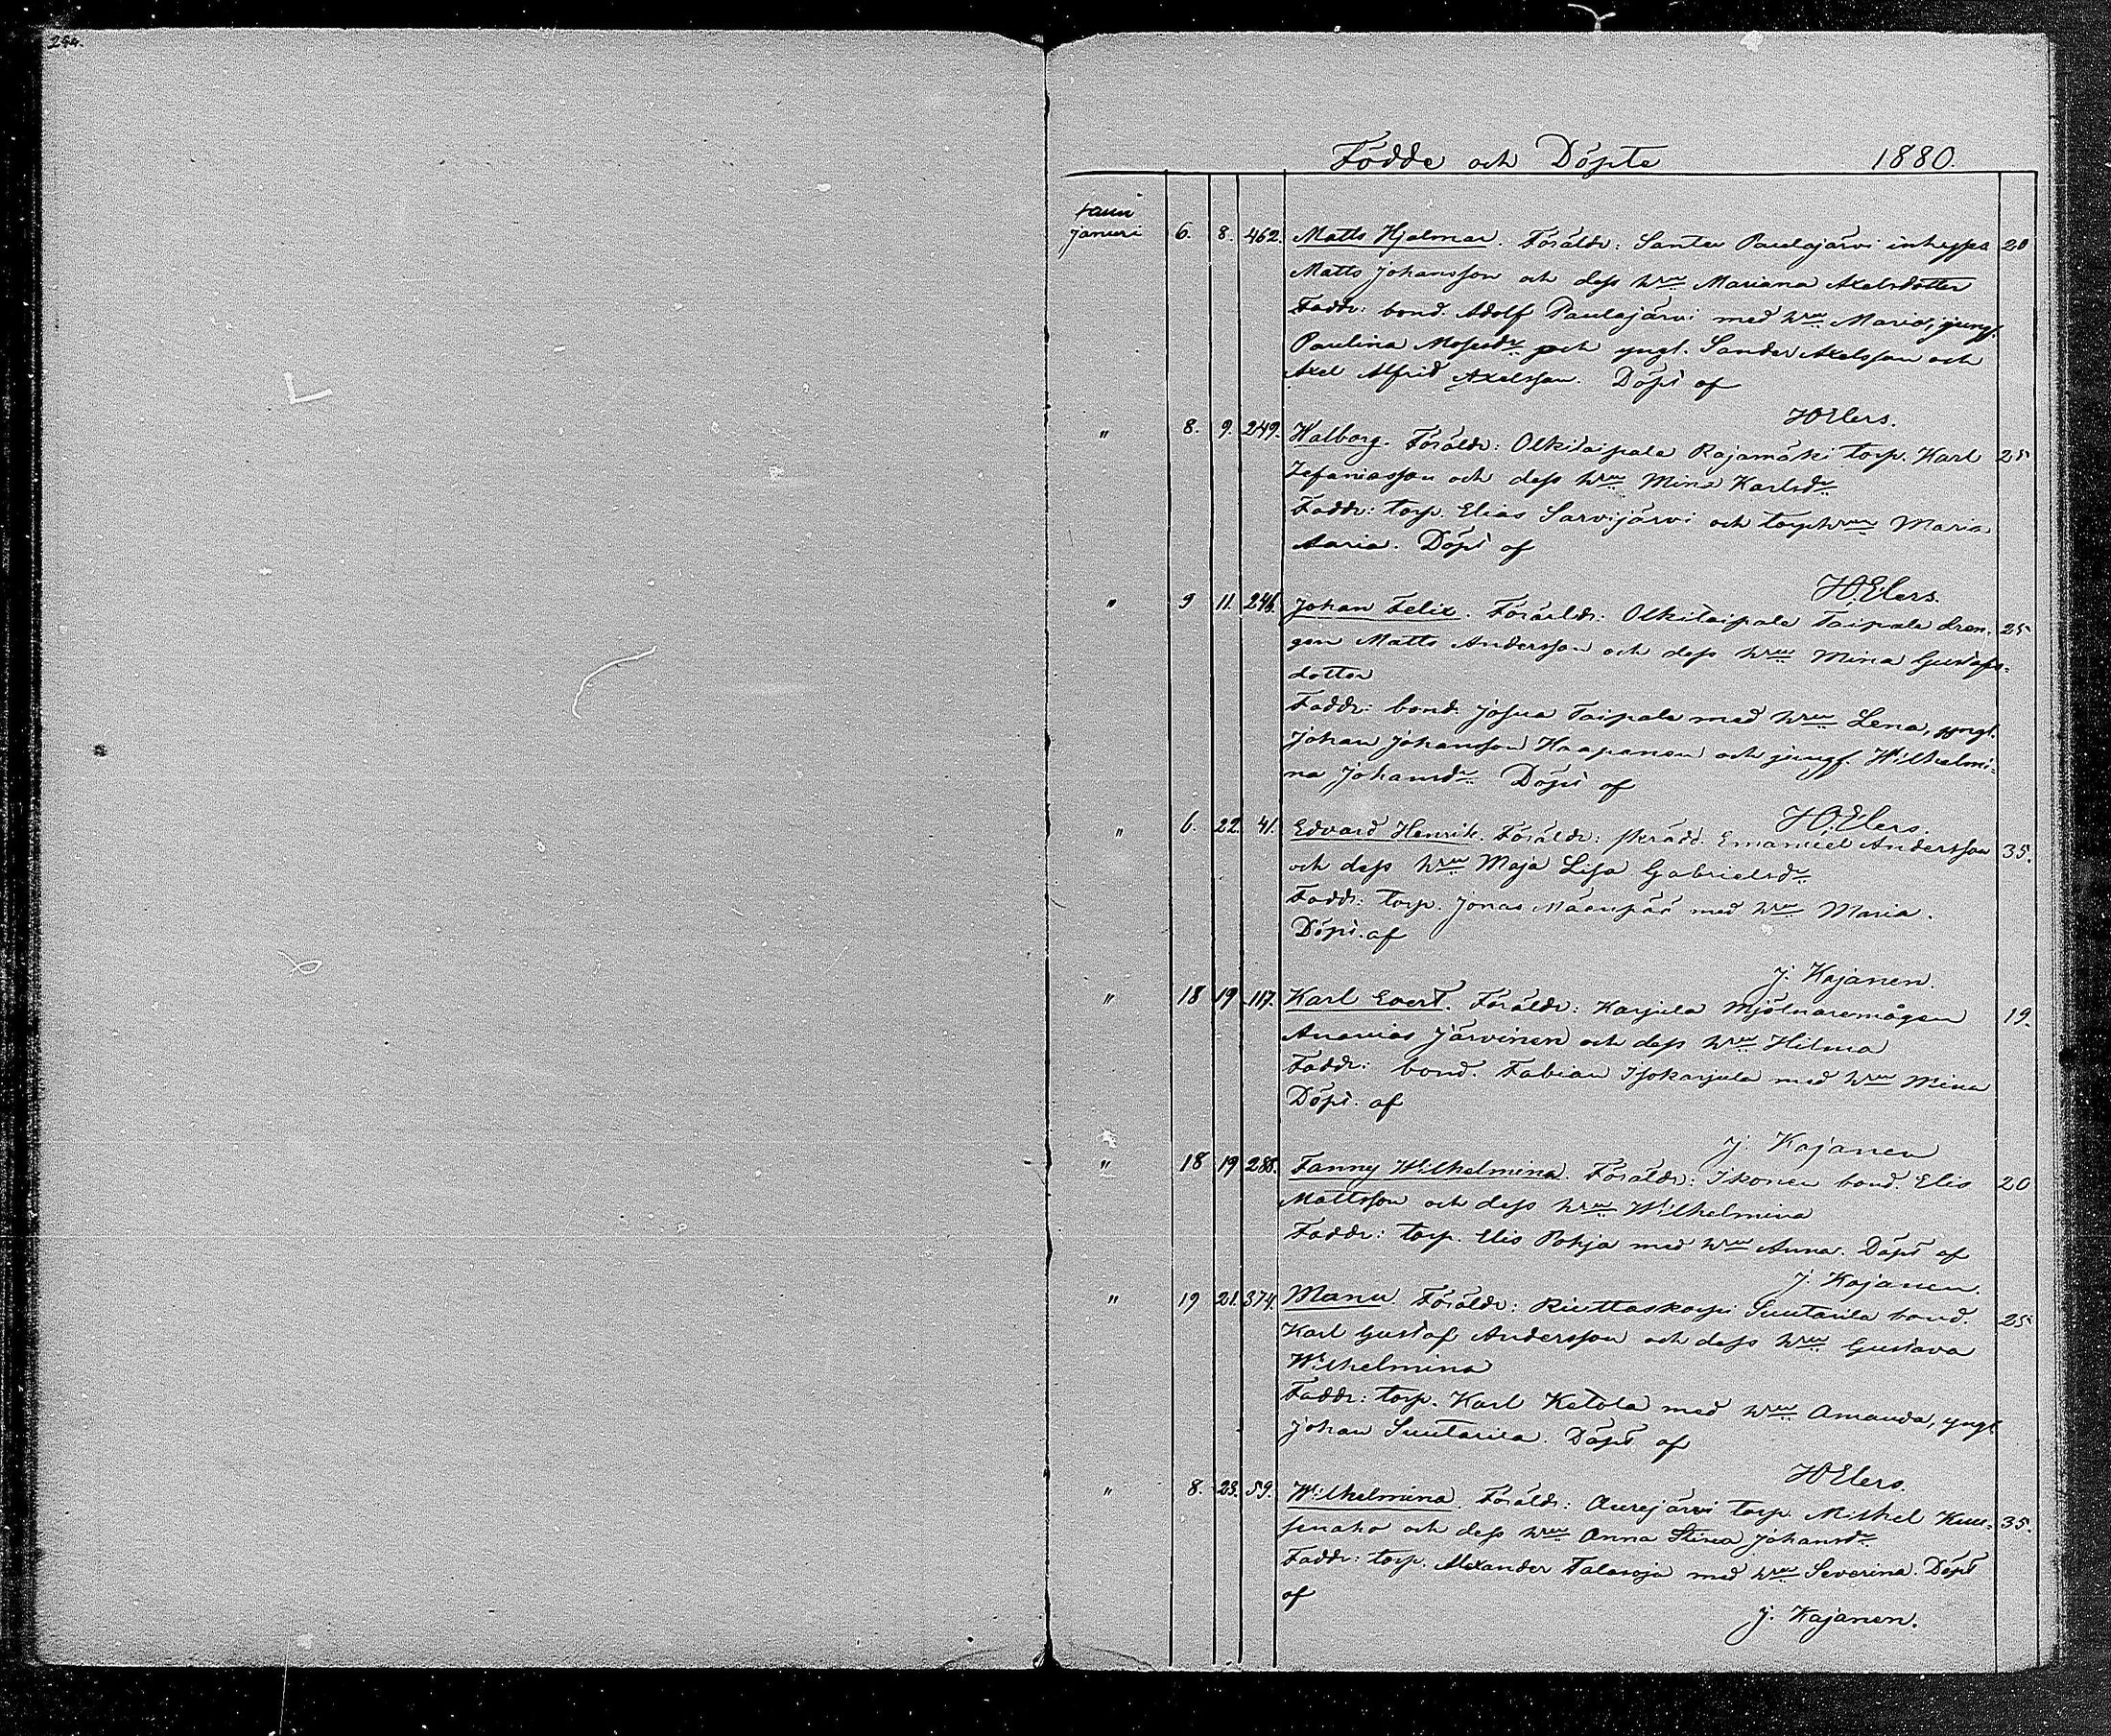 254.
Födde och Döpte 1880.
januri 6. 8. 462. Matts Hjalmar. Föräldr: Santeu Paulajärvi inhyses 20
Matts Johansson och dess hru Mariana Axelsdotter
Faddr: bond. Adolf Paulajärvi med hru Maria, jungf.
Paulina Mosesdr och yngl. Sander Axelsson och
Axel Alfrid Axelsson. Döpt af
HElers.
" 8. 9. 249. Walborg. Föräldr: Olkitaipale Rajamäki torp. Karl 25
Zefaniasson och dess hru Mina Karlsdr
Faddr: torp. Elias Sarvijärvi och torphru Maria
Döpt af
H.Elers.
" 9 11. 246. Johan Felix. Föräldr: Olkitaipale Taipale dren- 25
gen Matts Andersson och dess hru Mina Gustafs-
dotter
Faddr: bond. Josua Taipale med hru Lena, yngl.
Johan Johansson Haapanen och jungf. Wilhelmi-
na Johansdr Döpt af
H.Elers.
" 6. 22. 41. Edvard Henrik. Föräldr: skrädd. Emanuel Andersson 35.
och dess hru Maja Lisa Gabrielsdr
Faddr: torp. Jonas Mäenpää med hru Maria.
Döpt. af
J. Kajanen.
" 18 19 117. Karl Evert. Föräldr: Karjula Mjölnaremågen 19.
Ananias Järvinen och dess hru Hilma
Faddr: bond. Fabian Isokarjula med hru Mina
Döpt. af
J. Kajanen
" 18 19 288. Fanny Wilhelmina. Föräldr: Ikonen bond. Elis 20
Mattsson och dess hru Wilhelmina
Faddr: torp. Elis Pohja med hru Anna. Döpt af
J. Kajanen.
" 19 21. 374. Manu. Föräldr: Riuttaskorpi Suutarila bond. 25
Karl Gustaf Andersson och dess hru Gustava
Wilhelmina
Faddr: torp. Karl Ketola med hru Amanda, yngl
Johan Suutarila. Döpt af
HElers.
" 8. 23. 59. Wilhelmina. Föräldr: Aurejärvi torp. Mikkel Kuu- 35.
senaho och dess hru Anna Stina Johansdr
Faddr: torp. Alexander Talasoja med hru Severina. Döpt
af
J. Kajanen.